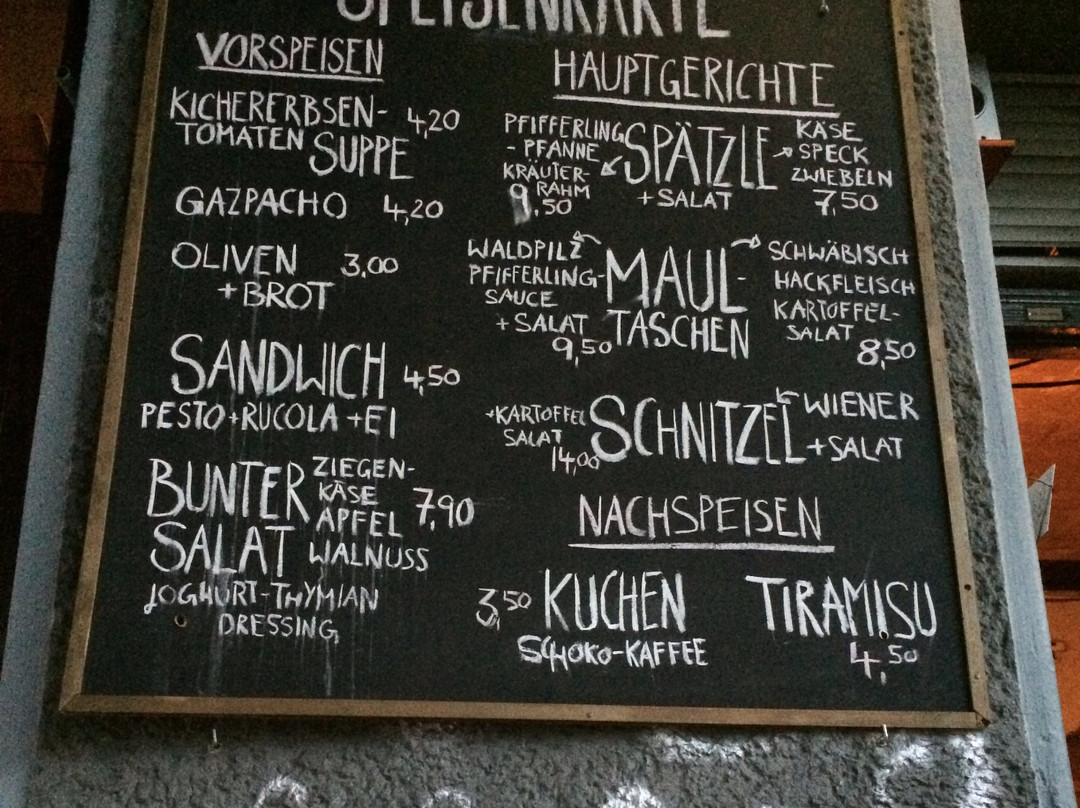 SPEISENKARTE
VORSPEISEN
KICHERERBSEN-
TOMATEN SUPPE 4,20
GAZPACHO 4,20
OLIVEN 3,00
+ BROT
SANDWICH 4,50
PESTO + RUCOLA + EI
BUNTER ZIEGEN-
KÄSE 7,90
ÄPFEL
SALAT WALNUSS
JOGHURT-THYMIAN
DRESSING
HAUPTGERICHTE
PFIFFERLING
- PFANNE
KRÄUTER-
RAHM
9,50
SPÄTZLE
+ SALAT
KÄSE
SPECK
ZWIEBELN
7,50
WALDPILZ
PFIFFERLING-
SAUCE
+ SALAT
9,50
MAUL-
TASCHEN
SCHWÄBISCH
HACKFLEISCH
KARTOFFEL-
SALAT
8,50
+KARTOFFEL
SALAT
14,00
SCHNITZEL
WIENER
+ SALAT
NACHSPEISEN
3,50 KUCHEN
SCHOKO-KAFFEE
TIRAMISU
4,50